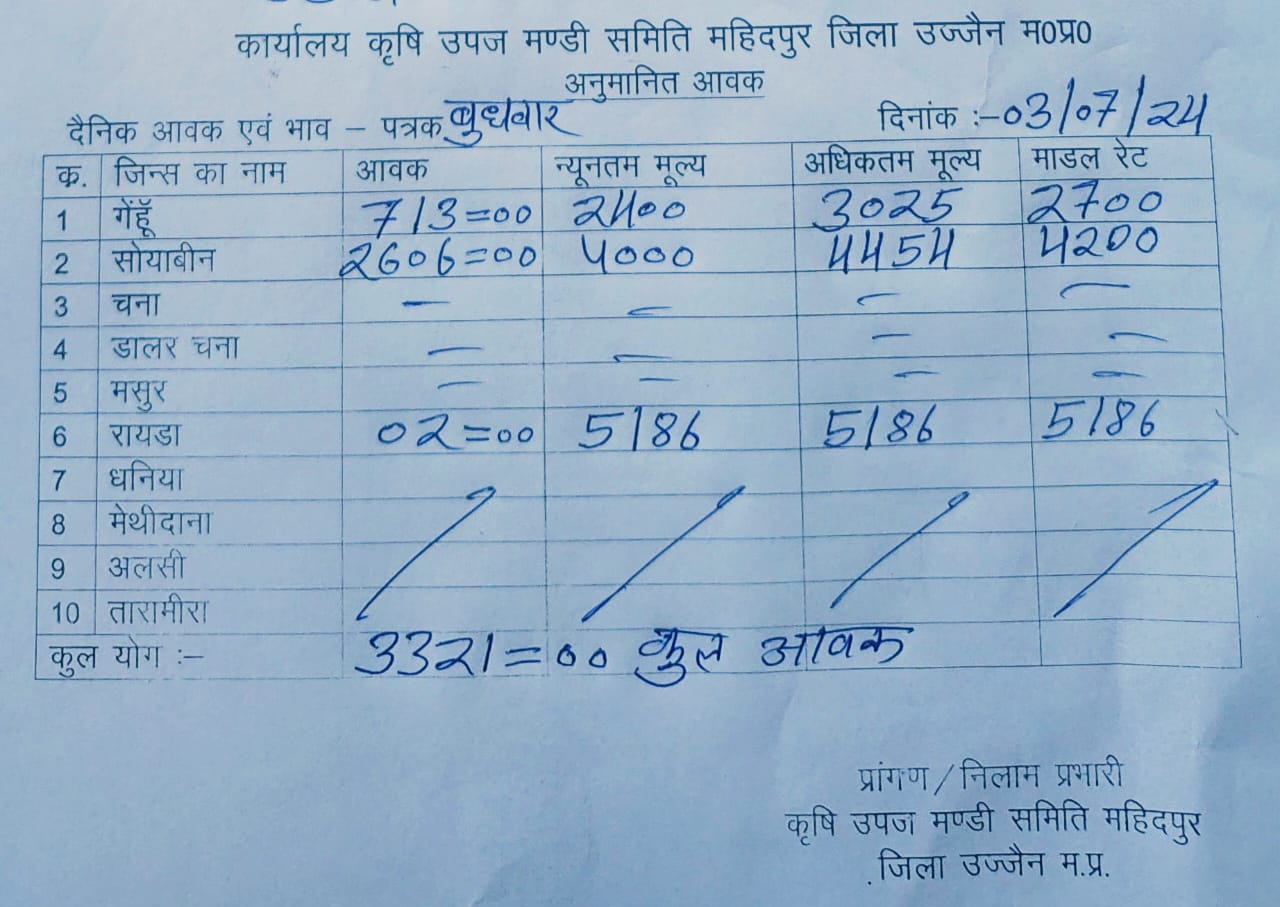 कार्यालय कृषि उपज मण्डी समिति महिदपुर जिला उज्जैन म0प्र0
अनुमानित आवक
दैनिक आवक एवं भाव – पत्रक बुधवार दिनांक :–03/07/24
क. जिन्स का नाम आवक न्यूनतम मूल्य अधिकतम मूल्य माडल रेट
1 गेंहूॅ 713=00 2400 3025 2700
2 सोयाबीन 2606=00 4000 4454 4200
3 चना – – – –
4 डालर चना – – – –
5 मसुर – – – –
6 रायडा 02=00 5186 5186 5186
7 धनिया
8 मेथीदाना
9 अलसी
10 तारामीरा
कुल योग :– 3321=00 कुल आवक
प्रांगण / निलाम प्रभारी
कृषि उपज मण्डी समिति महिदपुर
जिला उज्जैन म.प्र.